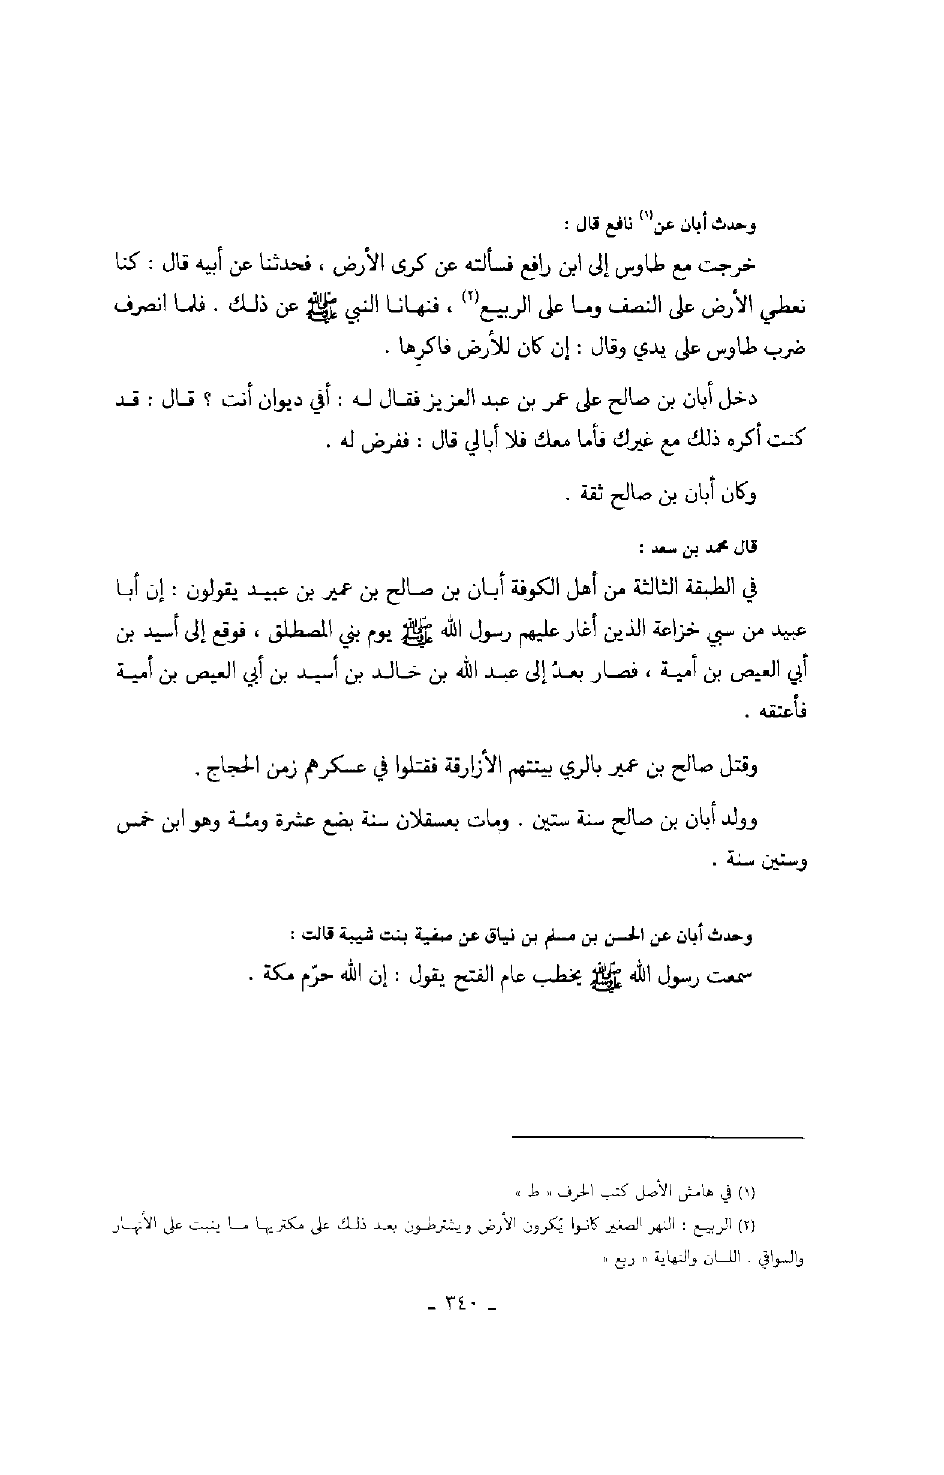 وحدث أبان عن(١) نافع قال :
خرجت مع طاوس إلى ابن رافع فسألته عن كرى الأرض ، فحدثنا عن أبيه قال : كنا
نعطي الأرض على النصف وما على الربيع(٢) ، فنهانا النبي ﷺ عن ذلك . فلما انصرف
ضرب طاوس على يدي وقال : إن كان للأرض فاكرِها .
دخل أبان بن صالح على عمر بن عبد العزيز فقال له : أفي ديوان أنت ؟ قال : قد
كنت أكره ذلك مع غيرك فأما معك فلا أبالي قال : ففرض له .
وكان أبان بن صالح ثقة .
قال محمد بن سعد :
في الطبقة الثالثة من أهل الكوفة أبان بن صالح بن عمير بن عبيد يقولون : إن أبا
عبيد من سبي خزاعة الذين أغار عليهم رسول الله ﷺ يوم بني المصطلق ، فوقع إلى أسيد بن
أبي العيص بن أمية ، فصار بعدُ إلى عبد الله بن خالد بن أسيد بن أبي العيص بن أمية
فأعتقه .
وقتل صالح بن عمير بالري بيتتهم الأزارقة فقتلوا في عسكرهم زمن الحجاج .
وولد أبان بن صالح سنة ستين . ومات بعسقلان سنة بضع عشرة ومئة وهو ابن خمس
وستين سنة .
وحدث أبان عن الحسن بن مسلم بن نياق عن صفية بنت شيبة قالت :
سمعت رسول الله ﷺ يخطب عام الفتح يقول : إن الله حرّم مكة .
(١) في هامش الأصل كتب الحرف « ط »
(٢) الربيع : النهر الصغير كانوا يُكرون الأرض ويشترطون بعد ذلك على مكتريها ما ينبت على الأنهار
والسواقي . اللسان والنهاية « ربع »
ـ ٣٤٠ ـ